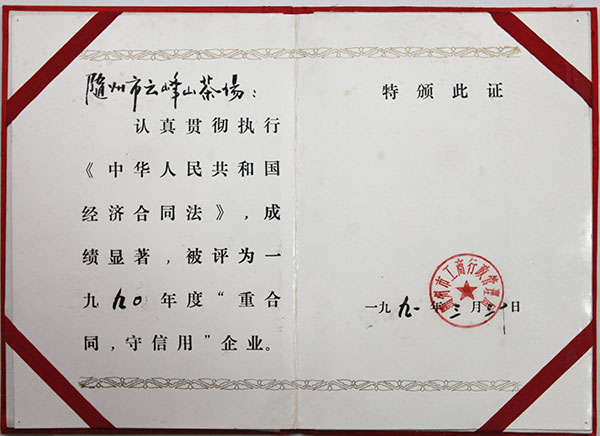 隨州市云峰山茶场：
认真贯彻执行
《中华人民共和国
经济合同法》，成
绩显著，被评为一
九九0年度“重合
同，守信用”企业。
特颁此证
随州市工商行政管理局
一九九一年三月日